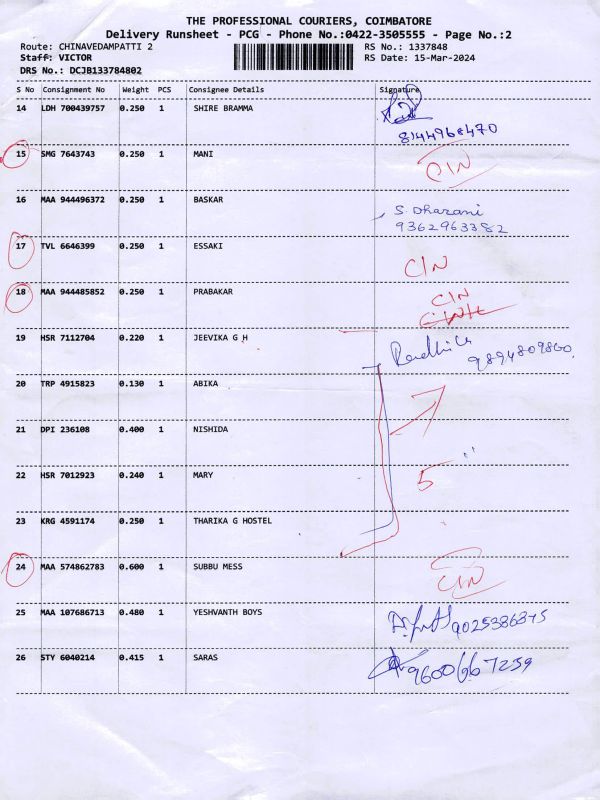 THE PROFESSIONAL COURIERS, COIMBATORE
Delivery Runsheet - PCG - Phone No.:0422-3505555 - Page No.:2
Route: CHINAVEDAMPATTI 2 RS No.: 1337848
Staff: VICTOR RS Date: 15-Mar-2024
DRS No.: DCJB133784802
S No Consignment No Weight PCS Consignee Details Signature
14 LDH 700439757 0.250 1 SHIRE BRAMMA
8144968470
15 SMG 7643743 0.250 1 MANI CIN
16 MAA 944496372 0.250 1 BASKAR S. Dharani
9362963382
17 TVL 6646399 0.250 1 ESSAKI CIN
18 MAA 944485852 0.250 1 PRABAKAR CIN
19 HSR 7112704 0.220 1 JEEVIKA G H 9894809860
20 TRP 4915823 0.130 1 ABIKA
21 DPI 236108 0.400 1 NISHIDA
22 HSR 7012923 0.240 1 MARY 5
23 KRG 4591174 0.250 1 THARIKA G HOSTEL
24 MAA 574862783 0.600 1 SUBBU MESS CIN
25 MAA 107686713 0.480 1 YESHVANTH BOYS 9025386375
26 STY 6040214 0.415 1 SARAS 9600667259